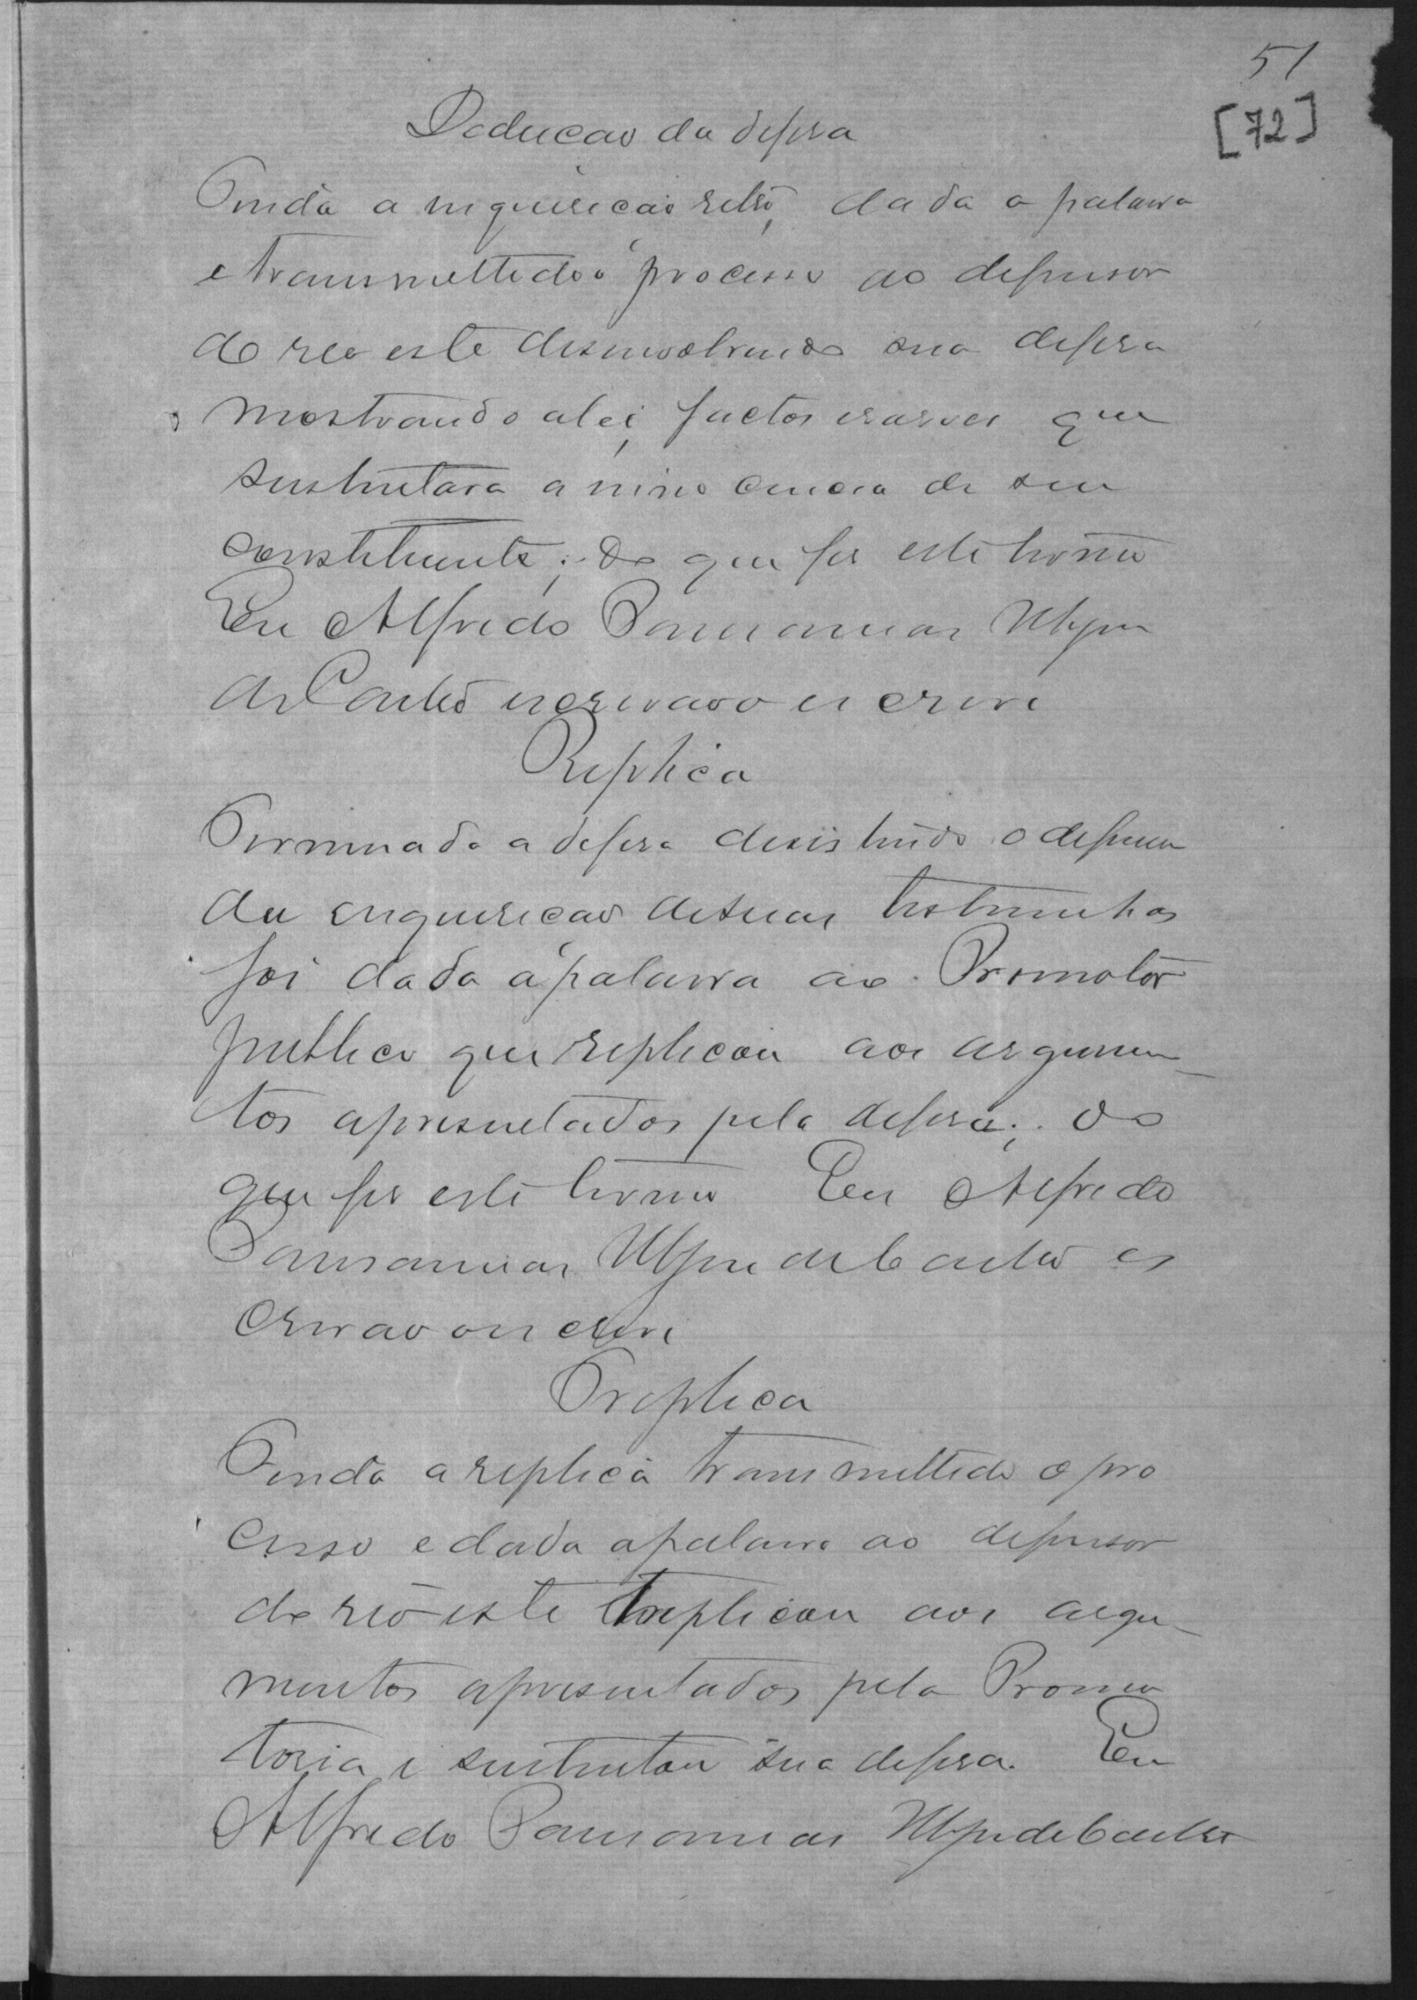 51
[72]
Deducção da defesa
Finda a inquirição retro, dada a palavra
e transmettido o processo ao defensor
do reo este desenvolvendo sua defesa
mostrando a lei, factos e rasoes que
sustentara a innocencia de seu
constituinte; do que fiz este termo
Eu Alfredo Pausanias
de Castro escrivão o escrevi
Replica
Terminada a defesa desistindo o defensor
da enquirição de suas testemunhas
foi dada a palavra ao Promotor
publico que replicou aos argumen-
tos apresentados pela defesa; do
que fiz este termo Eu Alfredo
Pausanias de Castro es
crivão o escrevi
Treplica
Finda a replica transmettido o pro
cesso e dada a palavra ao defensor
do reo este treplicou aos argu-
mentos apresentados pela Promo
toria e sustentou sua defesa. Eu
Alfredo Pausanias de Castro